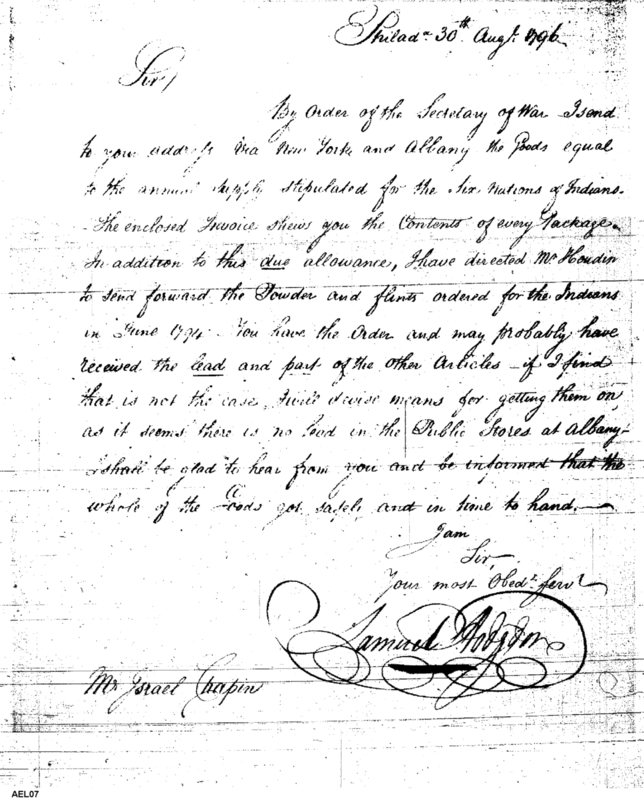 Philad.a 30th Augt. 1796
Sir,
By Order of the Secretary of War I send
to your address via New York and Albany the Goods equal
to the annual supply stipulated for the Six Nations of Indians.
The enclosed Invoice shews you the Contents of every Package.
In addition to this due allowance, I have directed Mr Houdin
to send forward the Powder and flints ordered for the Indians
in June 1794. You have the Order and may probably have
received the lead and part of the other Articles if I find
that is not the case, I will devise means for getting them on
as it seems there is no lead in the Public Stores at Albany.
I shall be glad to hear from you and be informed that the
whole of the Goods got safely and in time to hand.
I am
Sir,
Your most Obedt. Servt.
Samuel Hodgdon
Mr Israel Chapin
AEL07